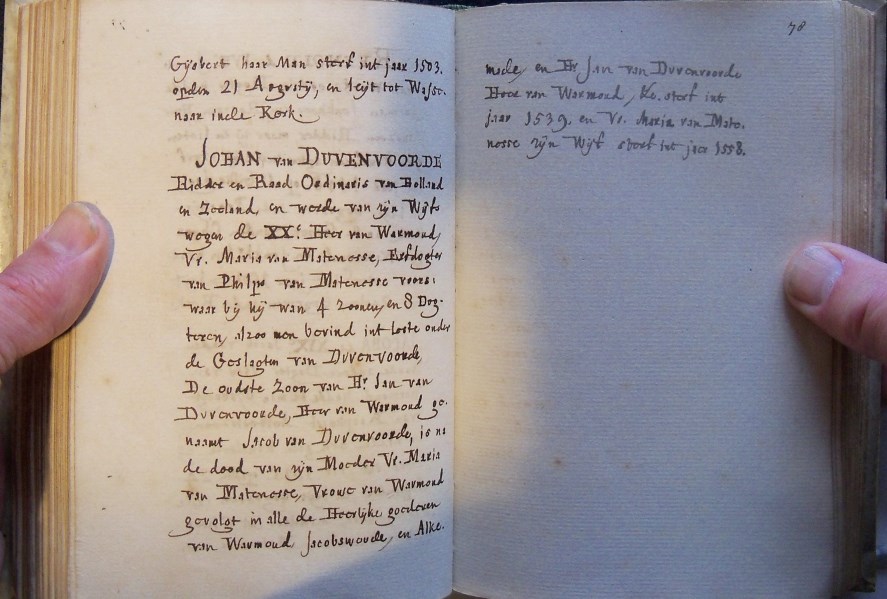 Gijsbert haar Man sterf int jaar 1503.
opden 21 Augustij, en leijt tot Wasse-
naar inde Kerk.
JOHAN van DUVENVOORDE
Ridder en Raad Ordinaris van Holland
en Zeeland, en werde van zijn Wijfs
wegen de XXe. Heer van Warmond,
Vr. Maria van Matenesse, Erfdogter
van Philps van Matenesse voors:
waar bij hij wan 4 zoonen, en 8 Dog-
teren, alzoo men bevind int leste onder
de Geslagten van Duvenvoorde,
De oudste Zoon van Hr. Jan van
Duvenvoorde, Heer van Warmond ge-
naamt Jacob van Duvenvoorde, is na
de dood van zijn Moeder Vr. Maria
van Matenesse, Vrouwe van Warmond
gevolgt in alle de Heerlijke goederen
van Warmond Jacobswoude, en Alke-
78
made, en Hr. Jan van Duvenvoorde
Heer van Warmond, &c. sterf int
jaar 1539, en Vr. Maria van Mate-
nesse zijn Wijf sterf int jaer 1558.